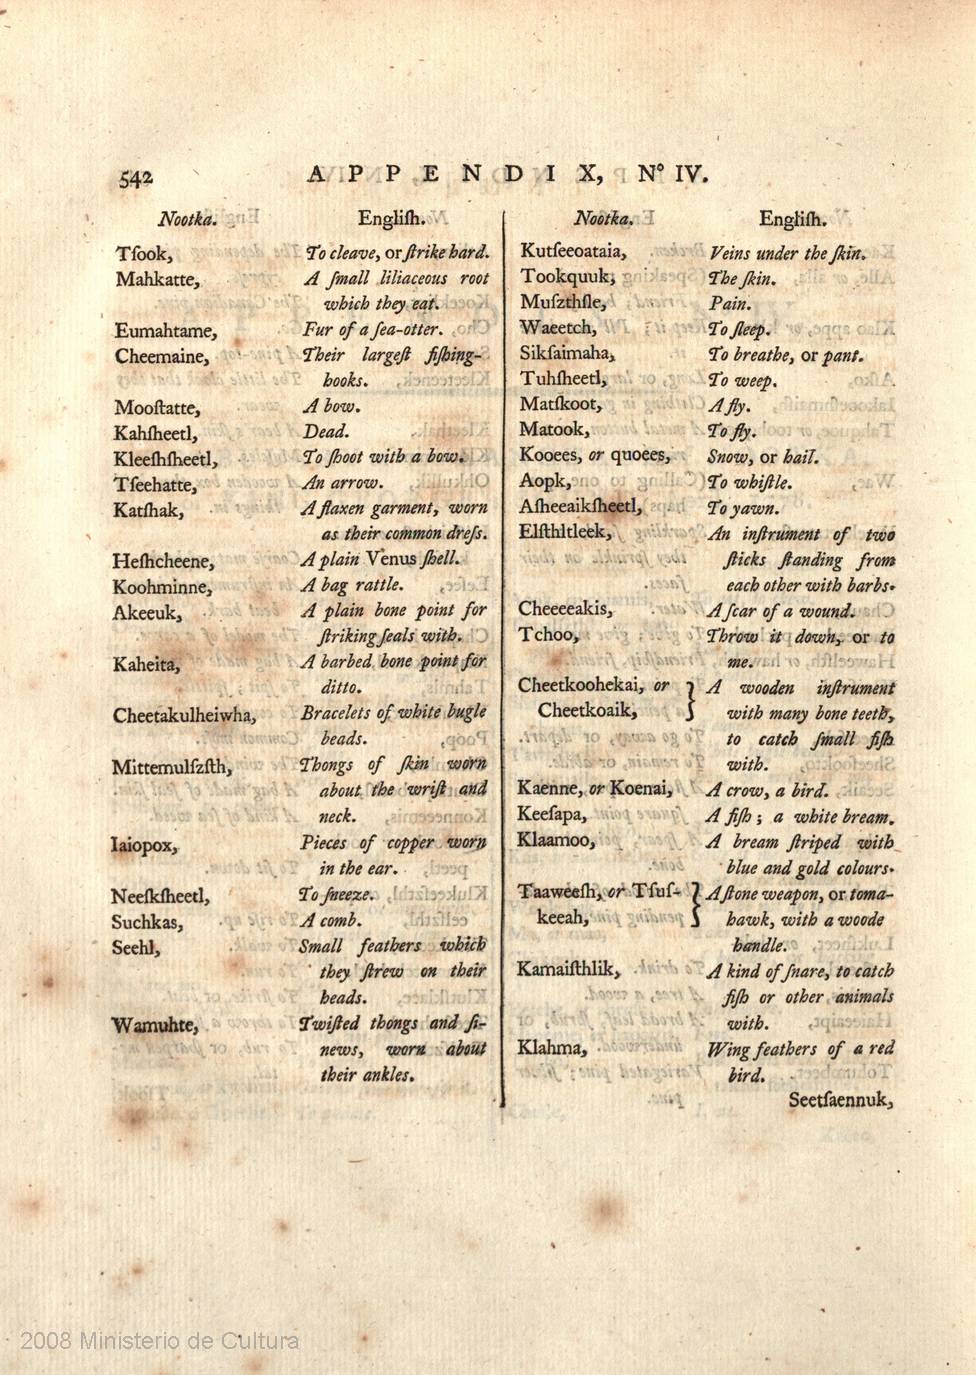 542 APPENDIX, Nº IV.
Nootka. Engliſh.
Tſook, To cleave, or ſtrike hard.
Mahkatte, A ſmall liliaceous root
which they eat.
Eumahtame, Fur of a ſea-otter.
Cheemaine, Their largeſt fiſhing-
hooks.
Mooſtatte, A bow.
Kahſheetl, Dead.
Kleeſhſheetl, To ſhoot with a bow.
Tſeehatte, An arrow.
Katſhak, A flaxen garment, worn
as their common dreſs.
Heſhcheene, A plain Venus ſhell.
Koohminne, A bag rattle.
Akeeuk, A plain bone point for
ſtriking ſeals with.
Kaheita, A barbed bone point for
ditto.
Cheetakulheiwha, Bracelets of white bugle
beads.
Mittemulſzſth, Thongs of ſkin worn
about the wriſt and
neck.
Iaiopox, Pieces of copper worn
in the ear.
Neeſkſheetl, To ſneeze.
Suchkas, A comb.
Seehl, Small feathers which
they ſtrew on their
heads.
Wamuhte, Twiſted thongs and ſi-
news, worn about
their ankles.
Nootka. Engliſh.
Kutſeeoataia, Veins under the ſkin.
Tookquuk, The ſkin.
Muſzthſle, Pain.
Waeetch, To ſleep.
Sikſaimaha, To breathe, or pant.
Tuhſheetl, To weep.
Matſkoot, A fly.
Matook, To fly.
Kooees, or quoees, Snow, or hail.
Aopk, To whiſtle.
Aſheeaikſheetl, To yawn.
Elſthltleek, An inſtrument of two
ſticks ſtanding from
each other with barbs.
Cheeeeakis, A ſcar of a wound.
Tchoo, Throw it down, or to
me.
Cheetkoohekai, or } A wooden inſtrument
Cheetkoaik, with many bone teeth,
to catch ſmall fiſh
with.
Kaenne, or Koenai, A crow, a bird.
Keeſapa, A fiſh; a white bream.
Klaamoo, A bream ſtriped with
blue and gold colours.
Taaweeſh, or Tſuſ- } A ſtone weapon, or toma-
keeah, hawk, with a woode
handle.
Kamaiſthlik, A kind of ſnare, to catch
fiſh or other animals
with.
Klahma, Wing feathers of a red
bird.
Seetſaennuk,
2008 Ministerio de Cultura